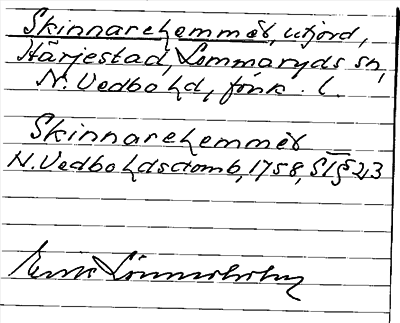 Skinnarehemmet, utjord,
Härjestad, Lommaryds sn,
N. Vedbo hd, fönk. l.
Skinnarehemmet
N. Vedbo hdsdomb, 1758, § 23
Erik